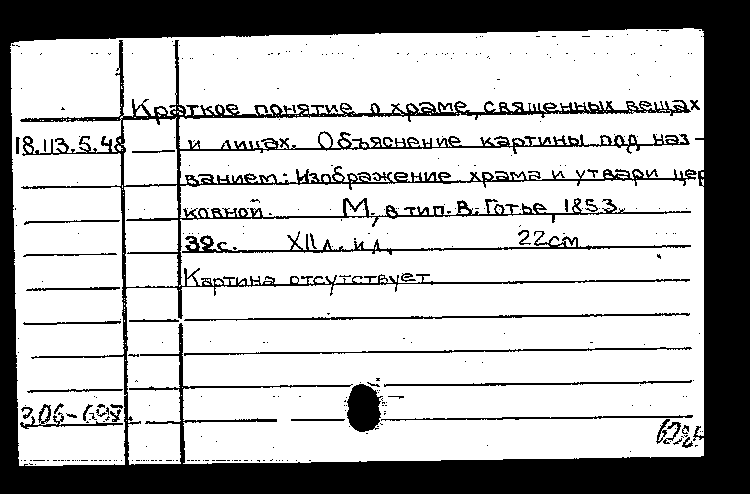 Краткое понятие о храме, священных вещах
18.113.5.48 и лицах. Объяснение картины под наз-
ванием: Изображение храма и утвари цер
ковной. М., в тип. В. Готье, 1853.
32с. XII л. ил. 22см.
Картина отсутствует.